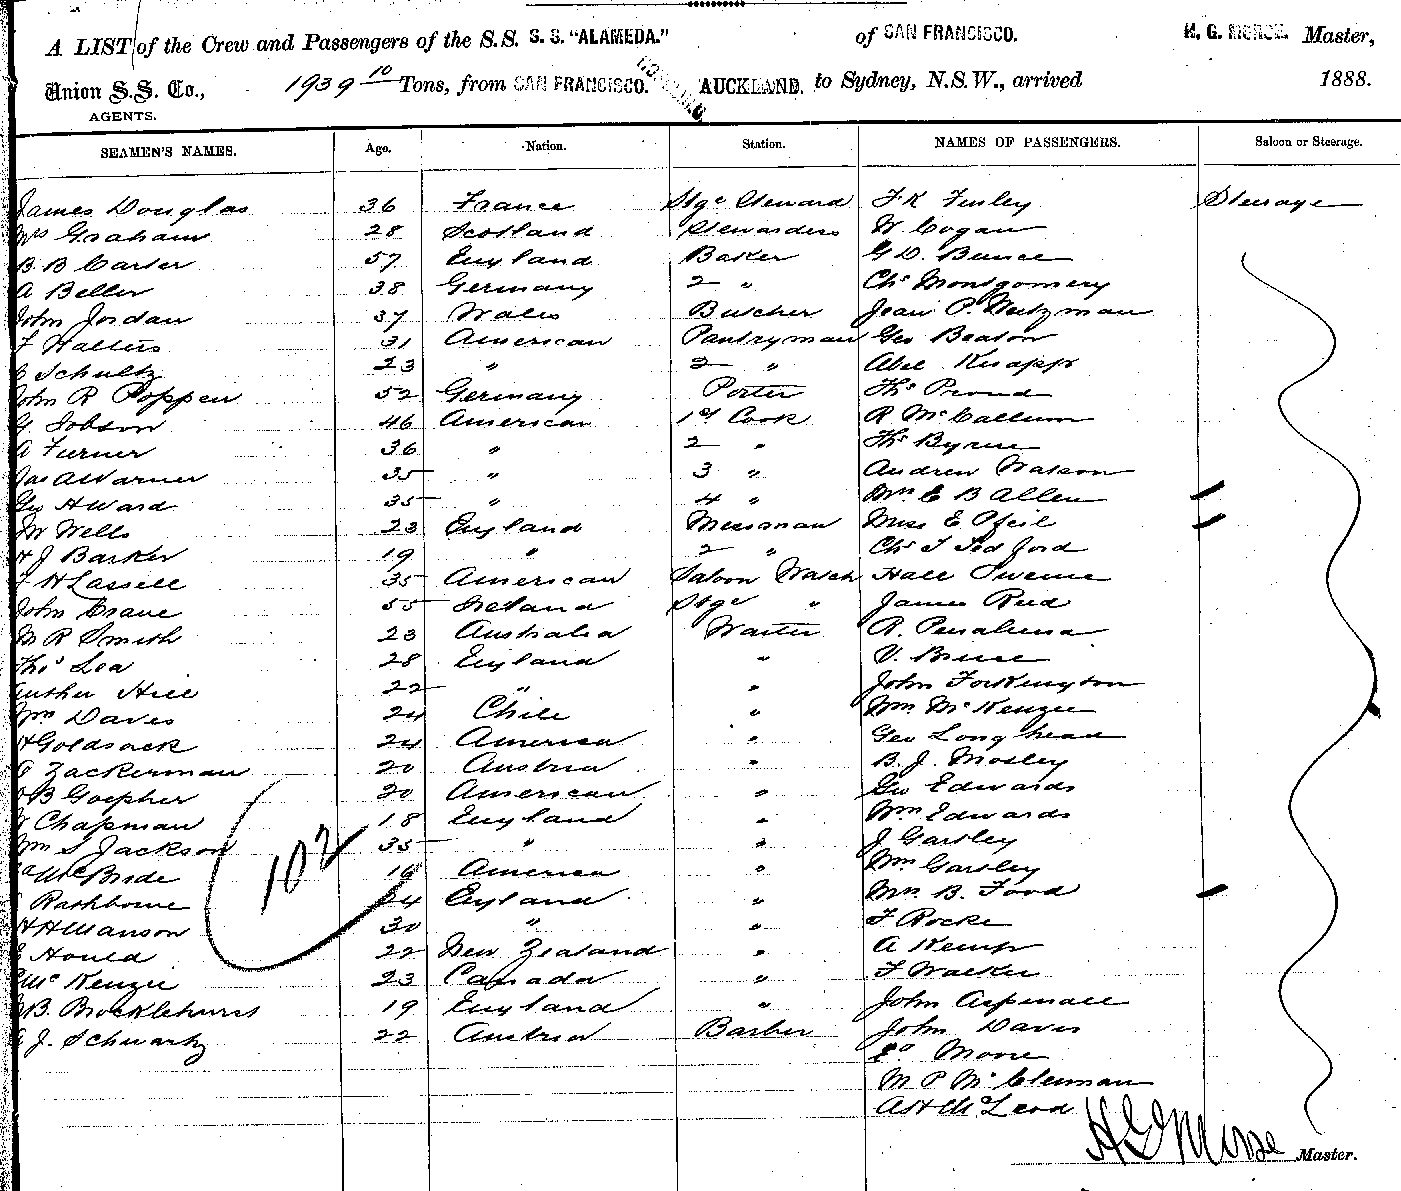 A LIST of the Crew and Passengers of the S.S. S. S. "ALAMEDA." of SAN FRANCISCO. H. G. MORSE. Master,
Union S.S. Co., 1939 10 Tons, from SAN FRANCISCO. AUCKLAND. to Sydney, N.S.W., arrived 1888.
AGENTS.
SEAMEN'S NAMES. Age. Nation. Station. NAMES OF PASSENGERS. Saloon or Steerage.
James Douglas 36 France Stge Steward F K Finley Steerage
Mrs Graham 28 Scotland Stewardess W. Cogan
B. B Carter 57 England Baker G D. Bunce
A Beller 38 Germany 2 " Chs Montgomery
John Jordan 37 Wales Butcher Jean P.
F Walters 31 American Pantryman Geo Beaton
Schultz 23 " 2 " Abel Knapp
John R Poppen 52 Germany Porter Ths Proud
G Jobson 46 American 1st Cook R McCallum
A Turner 36 " 2 " Ths Byrne
Jas A Warner 35 " 3 " Andrew Watson
Geo H Ward 35 " 4 " Mrs C B Allen
W Wells 23 England Messman Miss E Pfeil
H J Barker 19 " 2 " Chs T Ted ford
F H Lassell 35 American Saloon Watch Hall
John Crane 55 Ireland Stge " James Reed
R Smith 23 Australia Waiter R. Penaluna
Ths Lea 28 England " V. Bruse
Arthur Hill 22 " " John Forkington
Wm Davis 24 Chile " Wm McKenzie
H Goldsack 24 America " Geo Long head
Zackerman 20 Austria " B. J. Mosley
B Goepher 20 American " Geo Edwards
W Chapman 18 England " Wm Edwards
Wm S Jackson 35 " " J Gartley
McBride 19 America " Wm Gartley
Rathbone 24 England " Mrs B. Food
H H Manson 30 " " F Rocke
Hould 22 New Zealand " A Kemp
McKenzie 23 Canada " F Walker
B. Brocklehurst 19 England " John Aspinall
J. Schwartz 22 Austria Barber John Davis
102
Ed Moore
M P McClennan
A H McLeod
H G Morse Master.